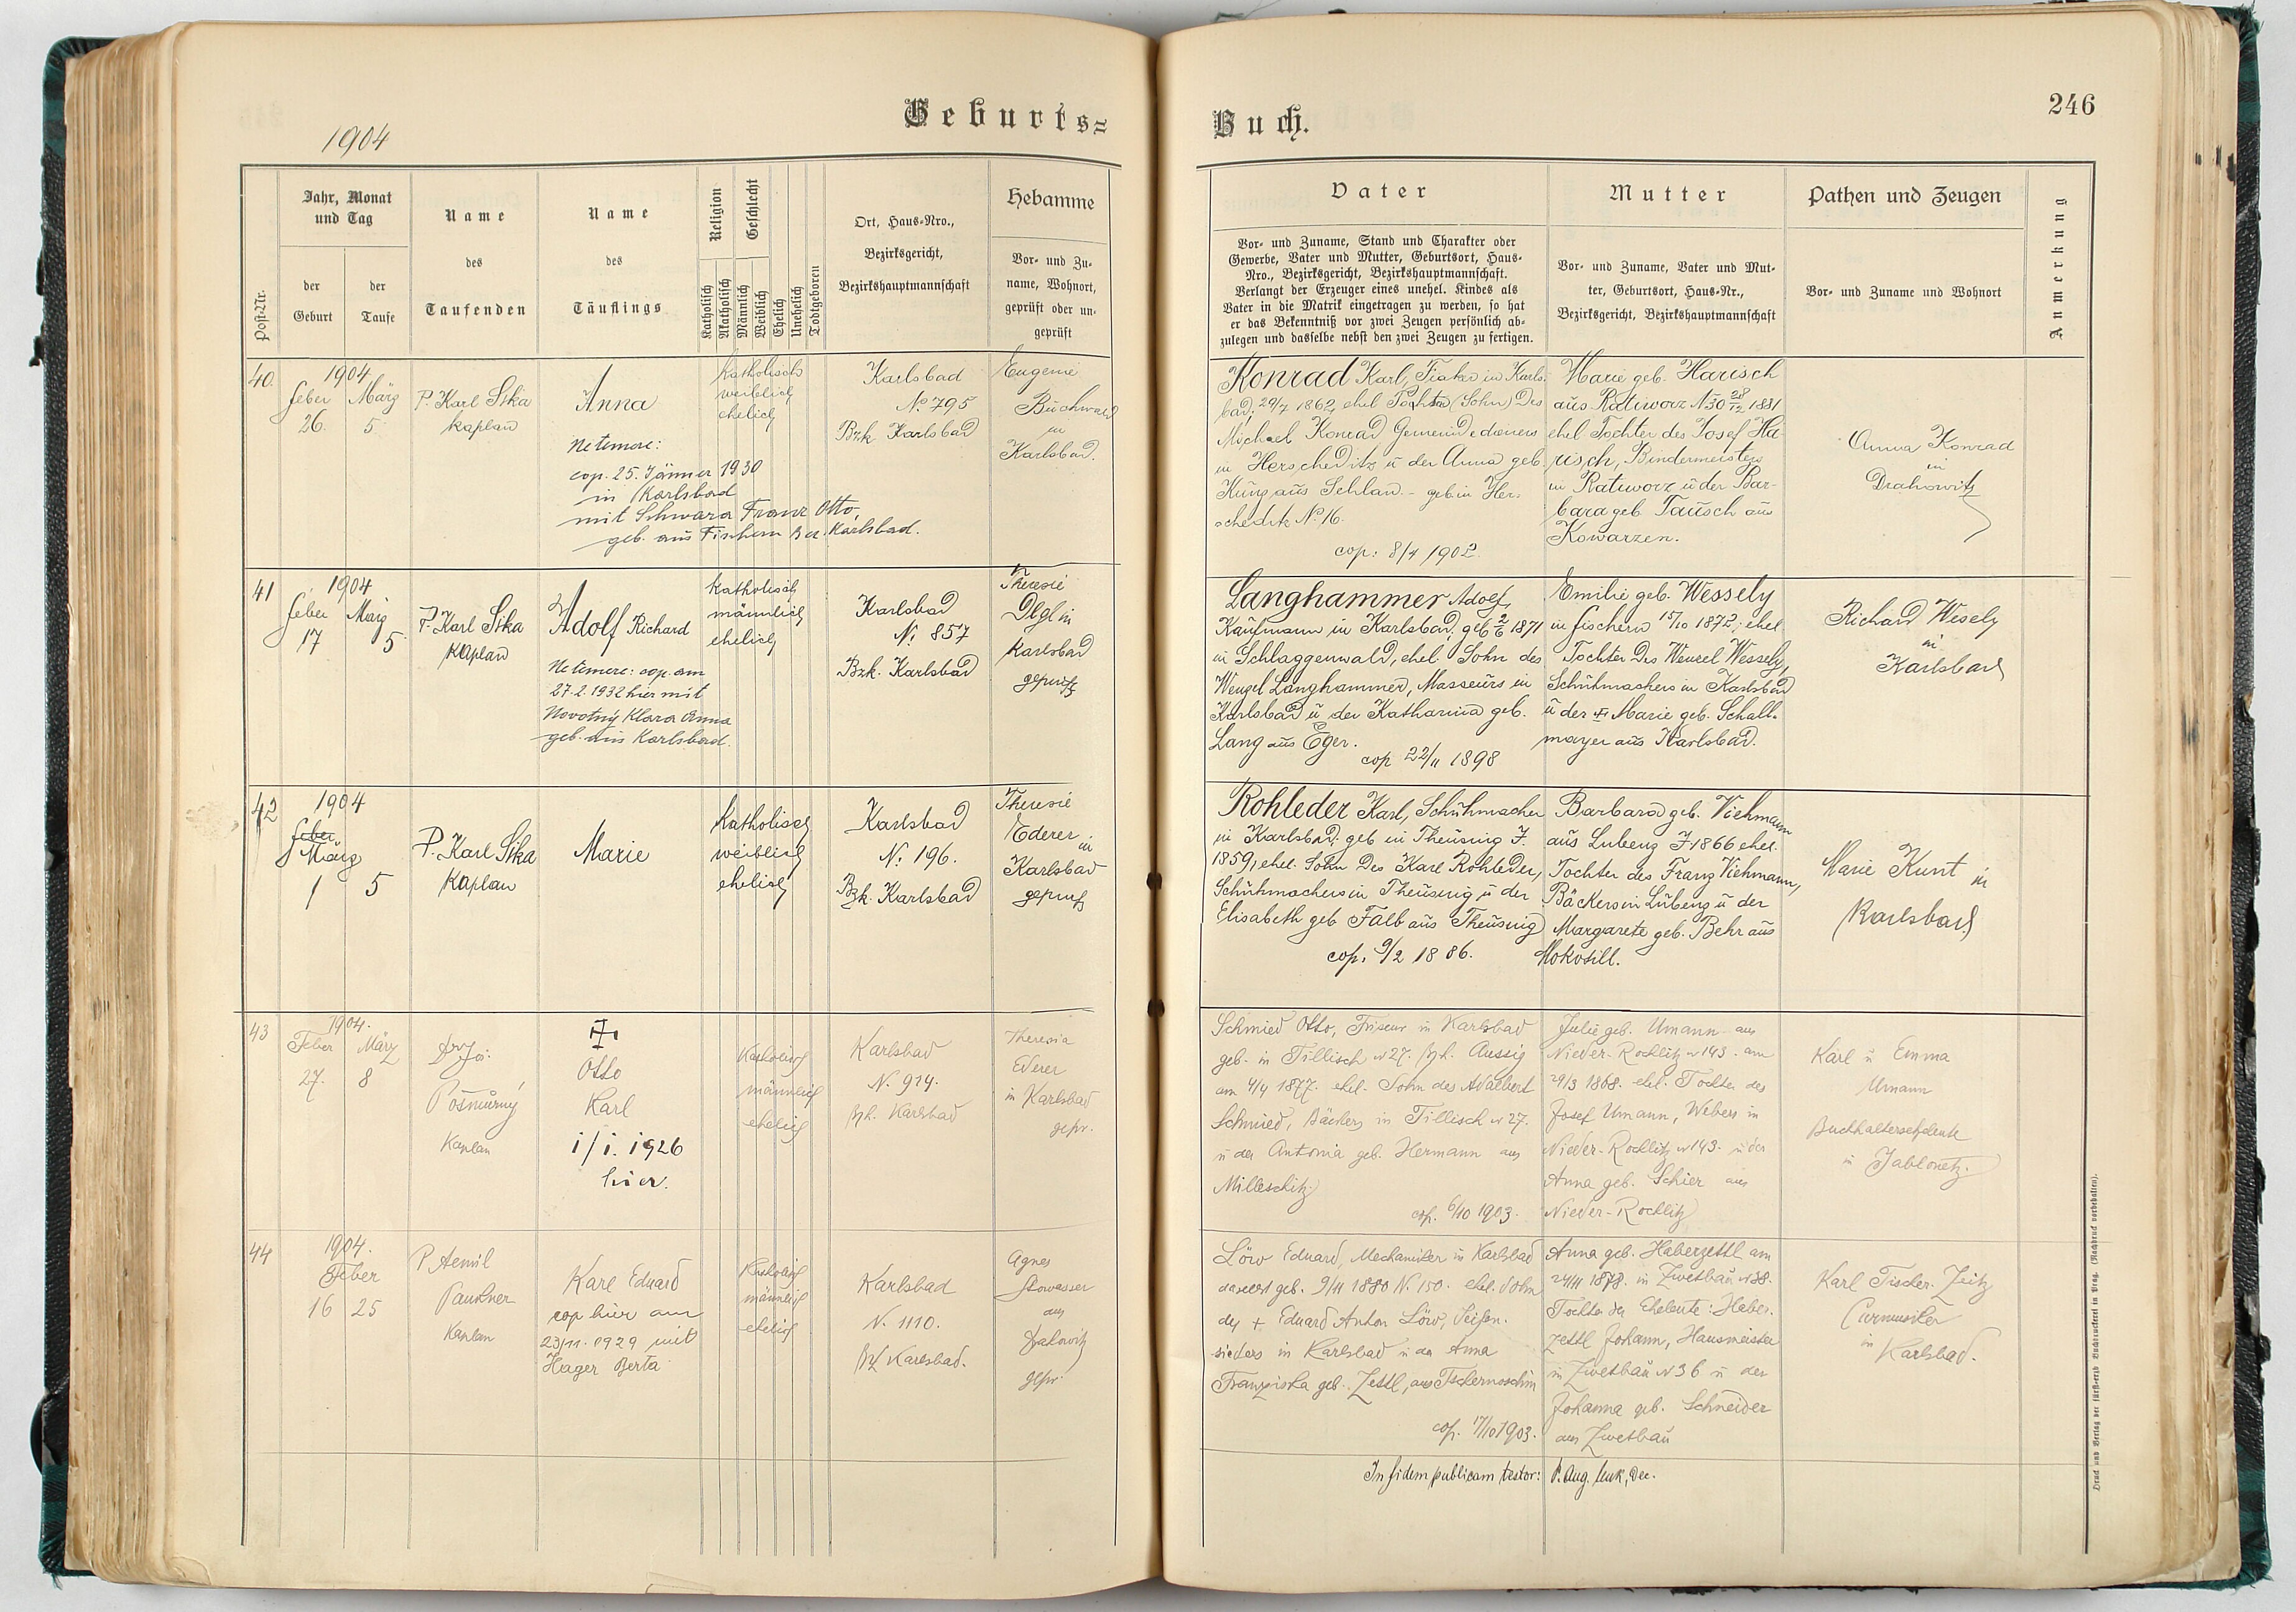 1904
Geburts=
Buch.
246
Post-Nr.
Jahr, Monat
und Tag
der
Geburt
der
Taufe
Name
des
Taufenden
Name
des
Täuflings
Religion
Katholisch
Akatholisch
Geschlecht
Männlich
Weiblich
Ehelich
Unehelich
Todtgeboren
Ort, Haus-Nro.,
Bezirksgericht,
Bezirkshauptmannschaft
Hebamme
Vor- und Zu-
name, Wohnort,
geprüft oder un-
geprüft
Vater
Vor- und Zuname, Stand und Charakter oder
Gewerbe, Vater und Mutter, Geburtsort, Haus-
Nro., Bezirksgericht, Bezirkshauptmannschaft.
Verlangt der Erzeuger eines unehel. Kindes als
Vater in die Matrik eingetragen zu werden, so hat
er das Bekenntniß vor zwei Zeugen persönlich ab-
zulegen und dasselbe nebst den zwei Zeugen zu fertigen.
Mutter
Vor- und Zuname, Vater und Mut-
ter, Geburtsort, Haus-Nr.,
Bezirksgericht, Bezirkshauptmannschaft
Pathen und Zeugen
Vor- und Zuname und Wohnort
Anmerkung
40.
1904
Feber März
26. 5.
P. Karl Sika
Kaplan
Anna
Ne temere:
cop. 25. Jänner 1930
in Karlsbad
mit Schwarz Franz Otto,
geb. aus Fischern Bez. Karlsbad.
katholisch
weiblich
ehelich
Karlsbad
No 795
Bzk. Karlsbad
Eugenie
Buchwald
in
Karlsbad.
Konrad Karl, Fiaker in Karls-
bad; 29/7 1862, ehel Tochter (Sohn) des
Michael Konrad Gemeindedieners
in Herscheditz u der Anna geb.
Kunz aus Sehlau. – geb in Her-
scheditz No 16.
cop: 8/4 1902
Marie geb. Harisch
aus Ratiworz No 30 28/12 1881
ehel Tochter des Josef Ha-
risch, Bindermeisters
in Ratiworz u der Bar-
bara geb. Tausch aus
Kowarzen.
Anna Konrad
in
Drahowitz
41
1904
Feber März
17 5
P. Karl Sika
Kaplan
Adolf Richard
Ne temere: cop. am
27.2.1932 hier mit
Novotný Klara Anna
geb. aus Karlsbad.
katholisch
männlich
ehelich
Karlsbad
No 857
Bzk. Karlsbad
Theresie
Degl in
Karlsbad
geprüft
Langhammer Adolf,
Kaufmann in Karlsbad, geb 2/6 1871
in Schlaggenwald, ehel Sohn des
Wenzel Langhammer, Masseurs in
Karlsbad u der Katharina geb.
Lang aus Eger.
cop 22/11 1898
Emilie geb. Wessely
in Fischern 15/10 1872, ehel
Tochter des Wenzel Wessely,
Schuhmachers in Karlsbad
u der + Marie geb. Schall-
mayer aus Karlsbad.
Richard Wesely
in
Karlsbad
42
1904
Feber
März
1 5
P. Karl Sika
Kaplan
Marie
Katholisch
weiblich
ehelich
Karlsbad
No 196.
Bzk. Karlsbad
Theresie
Ederer in
Karlsbad
geprüft
Rohleder Karl, Schuhmacher
in Karlsbad; geb in Theusing J.
1859, ehel. Sohn des Karl Rohleder,
Schuhmachers in Theusing u der
Elisabeth geb Falb aus Theusing
cop. 9/2 1886.
Barbara geb. Viehmann
aus Lubenz J. 1866 ehel.
Tochter des Franz Viehmann,
Bäckers in Lubenz u der
Margarete geb. Behr aus
Mokotill.
Marie Kunt in
Karlsbad
43
1904.
Feber März
27. 8
Kaplan
Otto
Karl
1/1. 1926
hier.
Katholisch
männlich
ehelich
Karlsbad
N. 914.
Bzk. Karlsbad
Theresia
Ederer
in Karlsbad
gepr.
Schmied Otto, Friseur in Karlsbad
geb. in Tillisch N 27. Bzk. Aussig
am 4/4 1877. ehel. Sohn des Adalbert
Schmied, Bäckers in Tillisch N 27.
u der Antonia geb. Hermann aus
Milleschitz
cop. 6/10 1903.
Julie geb. Umann aus
Nieder-Rochlitz N 143. am
29/3 1868. ehel. Tochter des
Josef Umann, Webers in
Nieder-Rochlitz N 143. u der
Anna geb. Schier aus
Nieder-Rochlitz
Karl u Emma
Umann
Buchhalterseheleute
in Jablonetz.
44
1904.
Feber
16 25
P Aemil
Paukner
Kaplan
Karl Eduard
cop hier am
23/11. 1929 mit
Hager Berta
Katholisch
männlich
ehelich
Karlsbad
N. 1110.
Bzk Karlsbad.
Agnes
Stowasser
aus
Drahowitz
gepr.
Löw Eduard, Mechaniker in Karlsbad
daselbst geb. 9/11 1880 N. 150. ehel. Sohn
des + Eduard Anton Löw, Seifen-
sieders in Karlsbad u der Anna
Franziska geb. Zettl, aus Tschernoschin
cop. 17/10 1903.
Anna geb. Haberzettl am
24/11 1878. in Zwetbau N 38.
Tochter der Eheleute: Haber-
zettl Johann, Hausmeister
in Zwetbau N 36 u der
Johanna geb. Schneider
aus Zwetbau
Karl Fischer
Curmusiker
in Karlsbad.
In fidem publicam testor: P. Aug. Dec.
Druck und Verlag der fürst-erzb. Buchdruckerei in Prag. (Nachdruck vorbehalten).